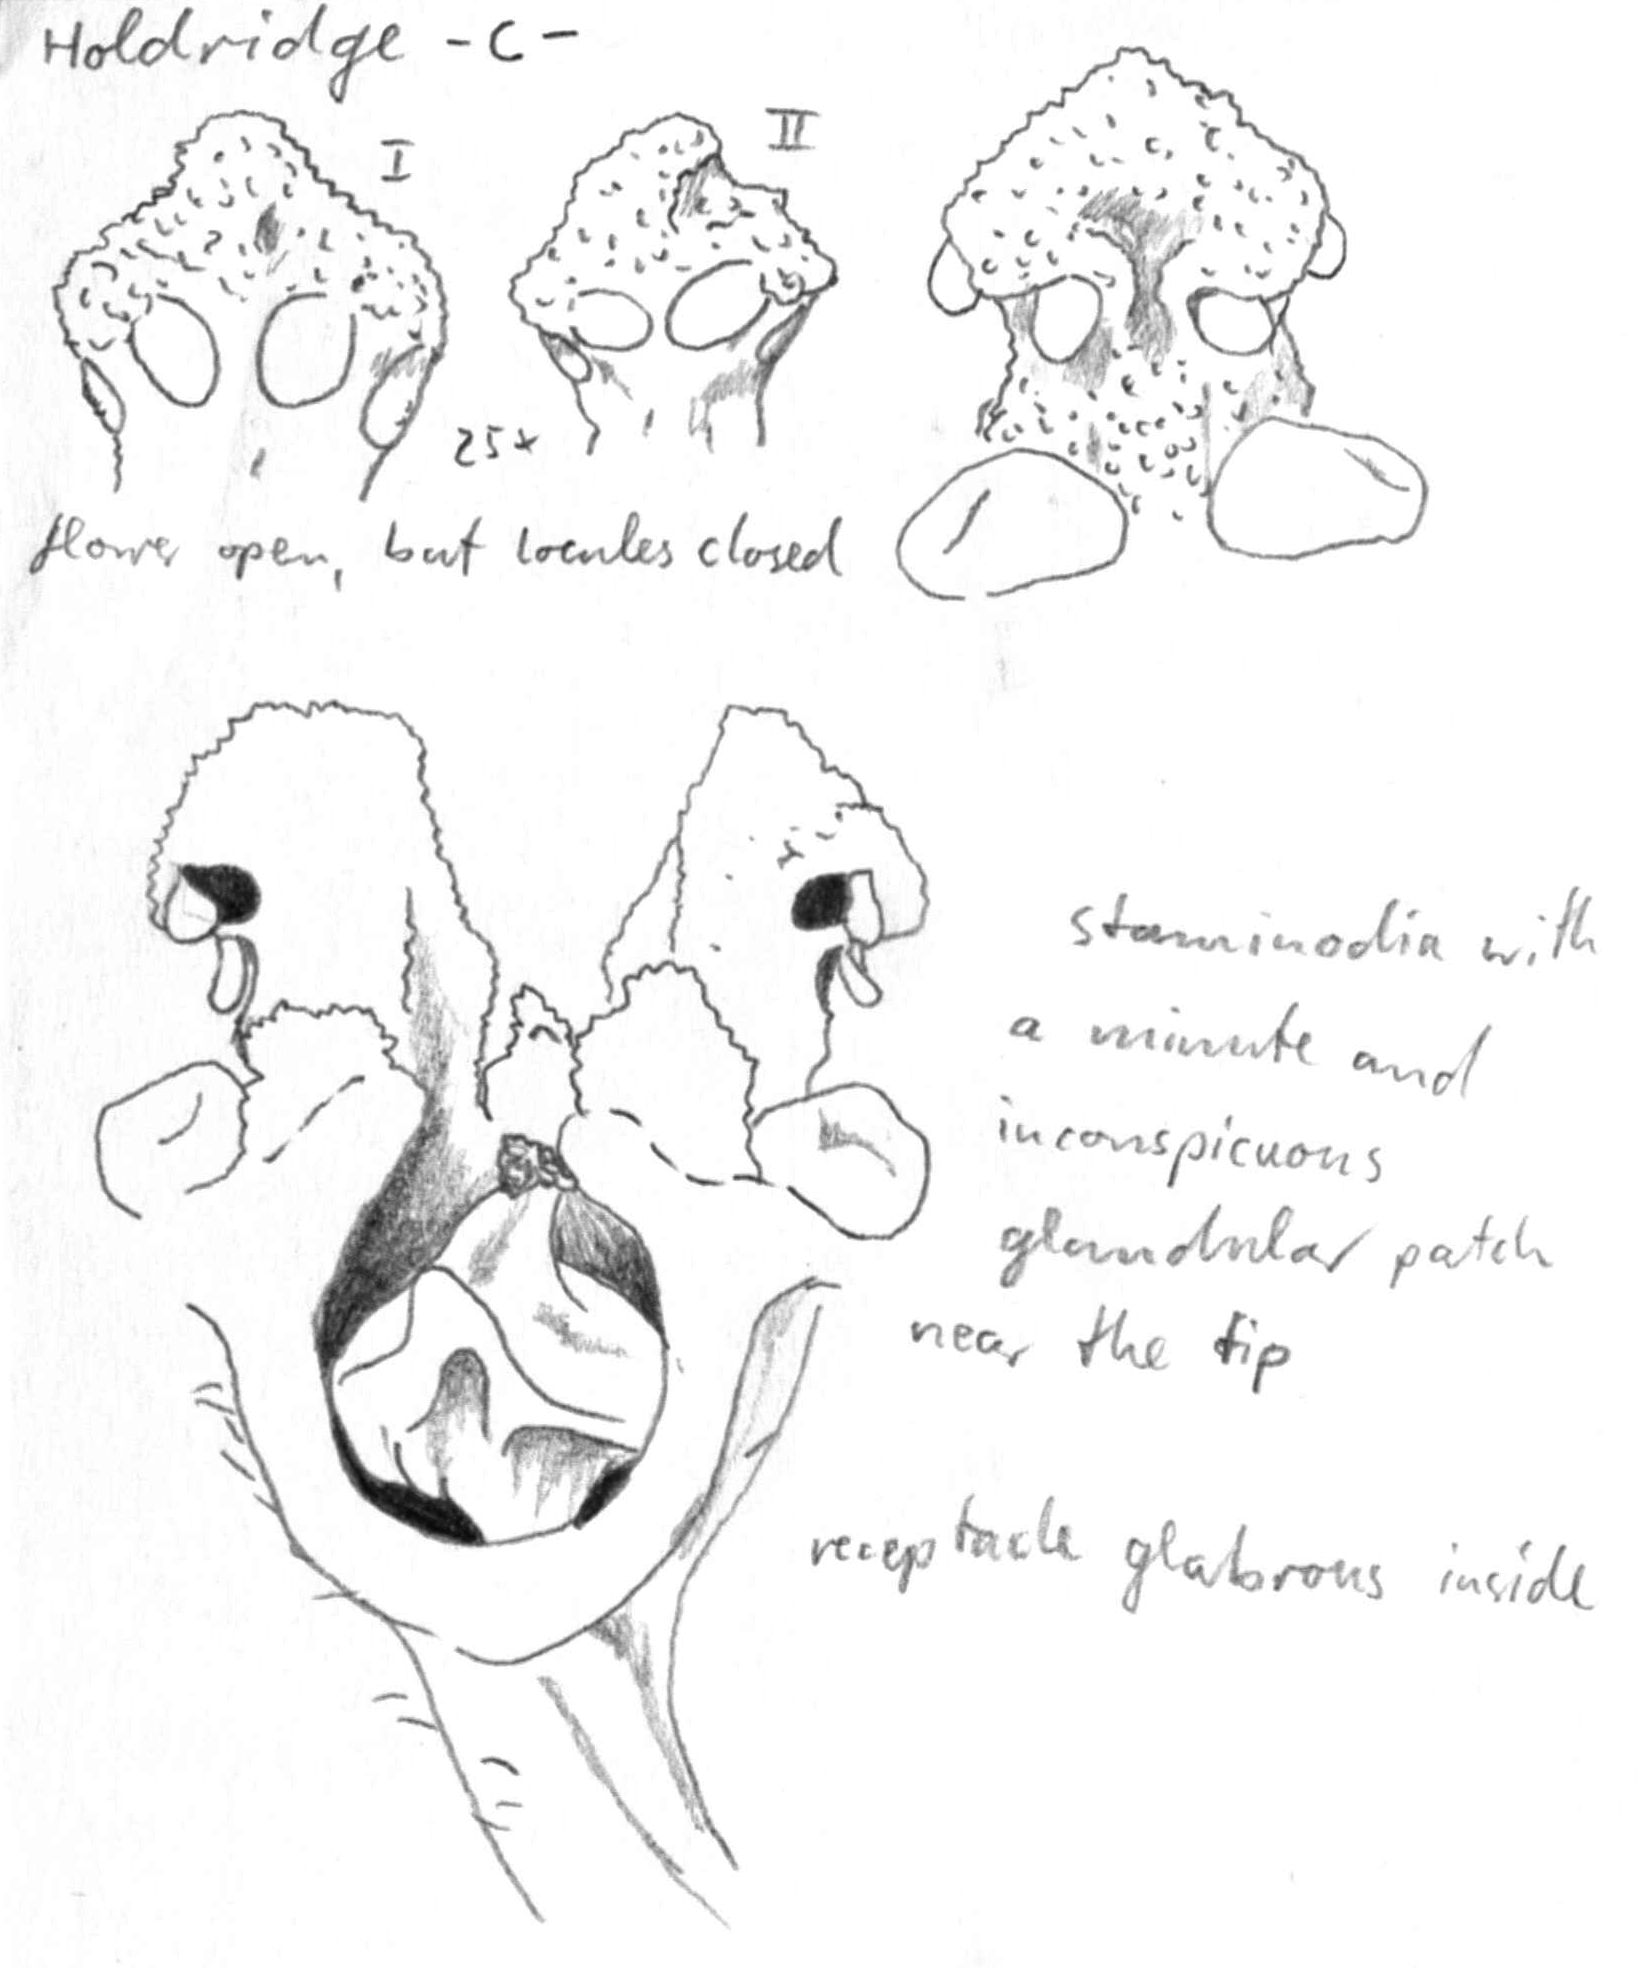 Holdridge -C-
I
II
25x
flower open, but locules closed
staminodia with
a minute and
inconspicuous
glandular patch
near the tip
receptacle glabrous inside